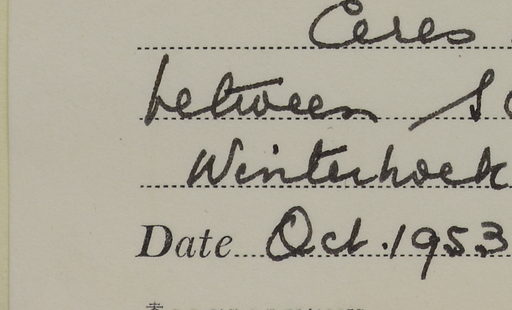 Ceres
between
Winterhoek
Date Oct. 1953